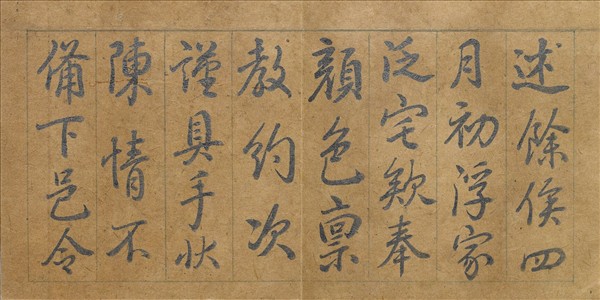 述餘俟四
月初浮家
泛宅欵奉
顔色稟
教約次
謹具手状
陳情不
備下邑令